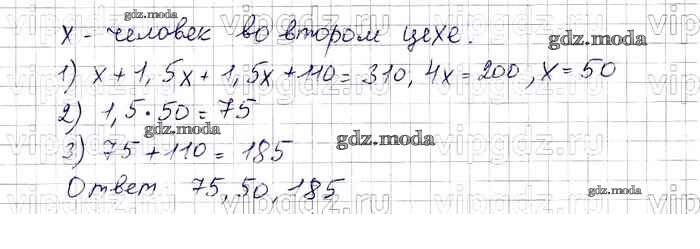 x - человек во втором цехе.
1) x + 1,5x + 1,5x + 110 = 310, 4x = 200, x = 50
2) 1,5 · 50 = 75
3) 75 + 110 = 185
Ответ 75, 50, 185
gdz.moda
gdz.moda
gdz.moda
gdz.moda
gdz.moda
gdz.moda
vipgdz.ru
vipgdz.ru
vipgdz.ru
vipgdz.ru